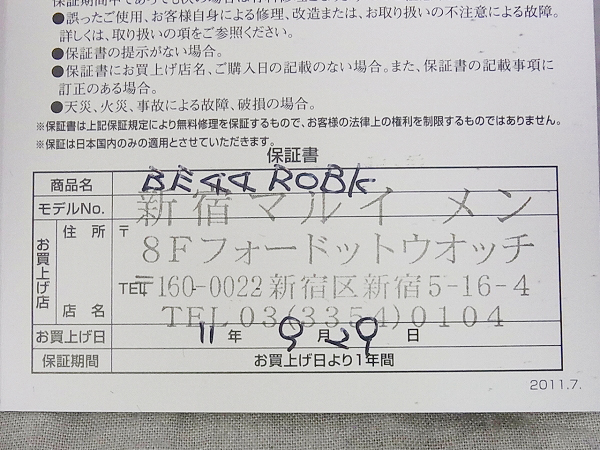 ●誤ったご使用、お客様自身による修理、改造または、お取り扱いの不注意による故障。
詳しくは、取り扱いの項をご参照ください。
●保証書の提示がない場合。
●保証書にお買上げ店名、ご購入日の記載のない場合。また、保証書の記載事項に
訂正のある場合。
●天災、火災、事故による故障、破損の場合。
※保証書は上記保証規定により無料修理を保証するもので、お客様の法律上の権利を制限するものではありません。
※保証は日本国内のみの適用とさせていただきます。
保証書
商品名 BE44ROBK
モデルNo. 新宿マルイ メン
お買上げ店 住所 〒 8Fフォードットウオッチ
TEL 〒160-0022 新宿区新宿5-16-4
店名 TEL 03(3354)0104
お買上げ日 11年 9月29日
保証期間 お買上げ日より1年間
2011.7.